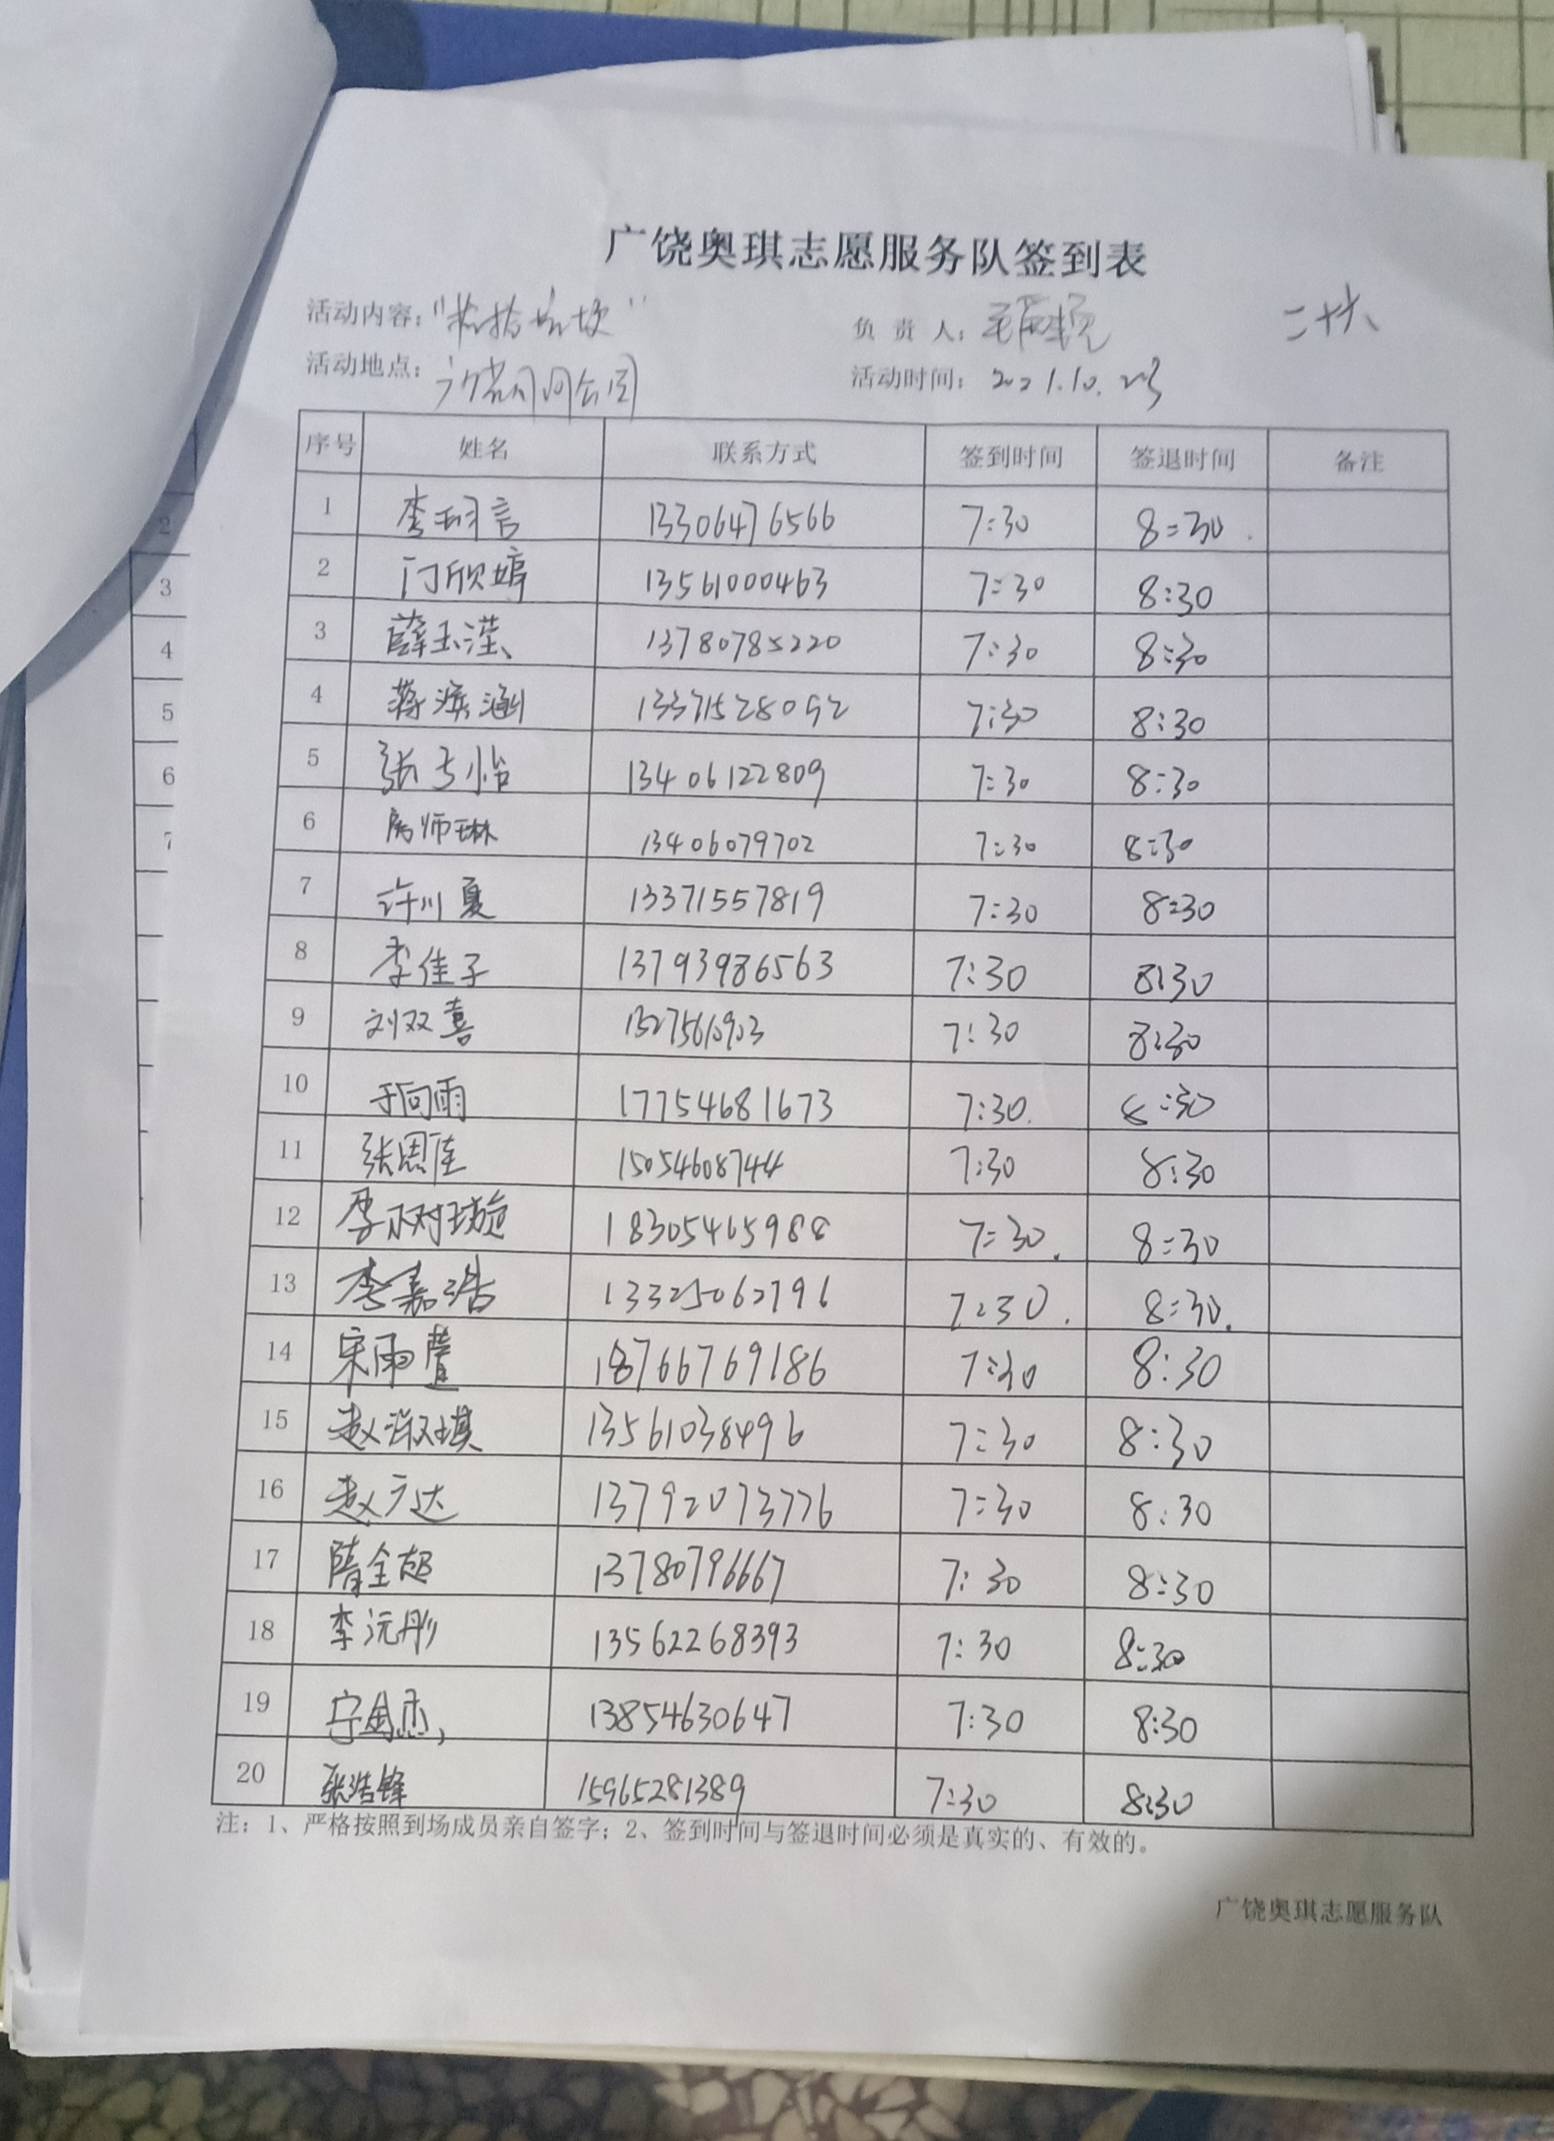 广饶奥琪志愿服务队签到表
活动内容：“捡拾垃圾” 负 责 人： 二十六
活动地点： 公园 活动时间：2021.10.23
序号 姓名 联系方式 签到时间 签退时间 备注
1 李 言 13306476566 7:30 8:30
2 门欣婷 13561000463 7:30 8:30
3 薛玉滢 13780785220 7:30 8:30
4 蒋 涵 13371528092 7:30 8:30
5 张 怡 13406122809 7:30 8:30
6 房师琳 13406079702 7:30 8:30
7 许川夏 13371557819 7:30 8:30
8 李佳子 13793986563 7:30 8:30
9 刘双喜 7:30 8:30
10 于向雨 17754681673 7:30 8:30
11 张恩佳 15054608744 7:30 8:30
12 李树璇 18305465988 7:30 8:30
13 李嘉浩 13325062796 7:30 8:30
14 宋雨萱 18766769186 7:30 8:30
15 赵淑琪 13561038496 7:30 8:30
16 赵广达 13792073776 7:30 8:30
17 隋全超 13780796667 7:30 8:30
18 李沅彤 13562268393 7:30 8:30
19 宁金杰 13854630647 7:30 8:30
20 张浩锋 15965281389 7:30 8:30
注：1、严格按照到场成员亲自签字；2、签到时间与签退时间必须是真实的、有效的。
广饶奥琪志愿服务队
2
3
4
5
6
7